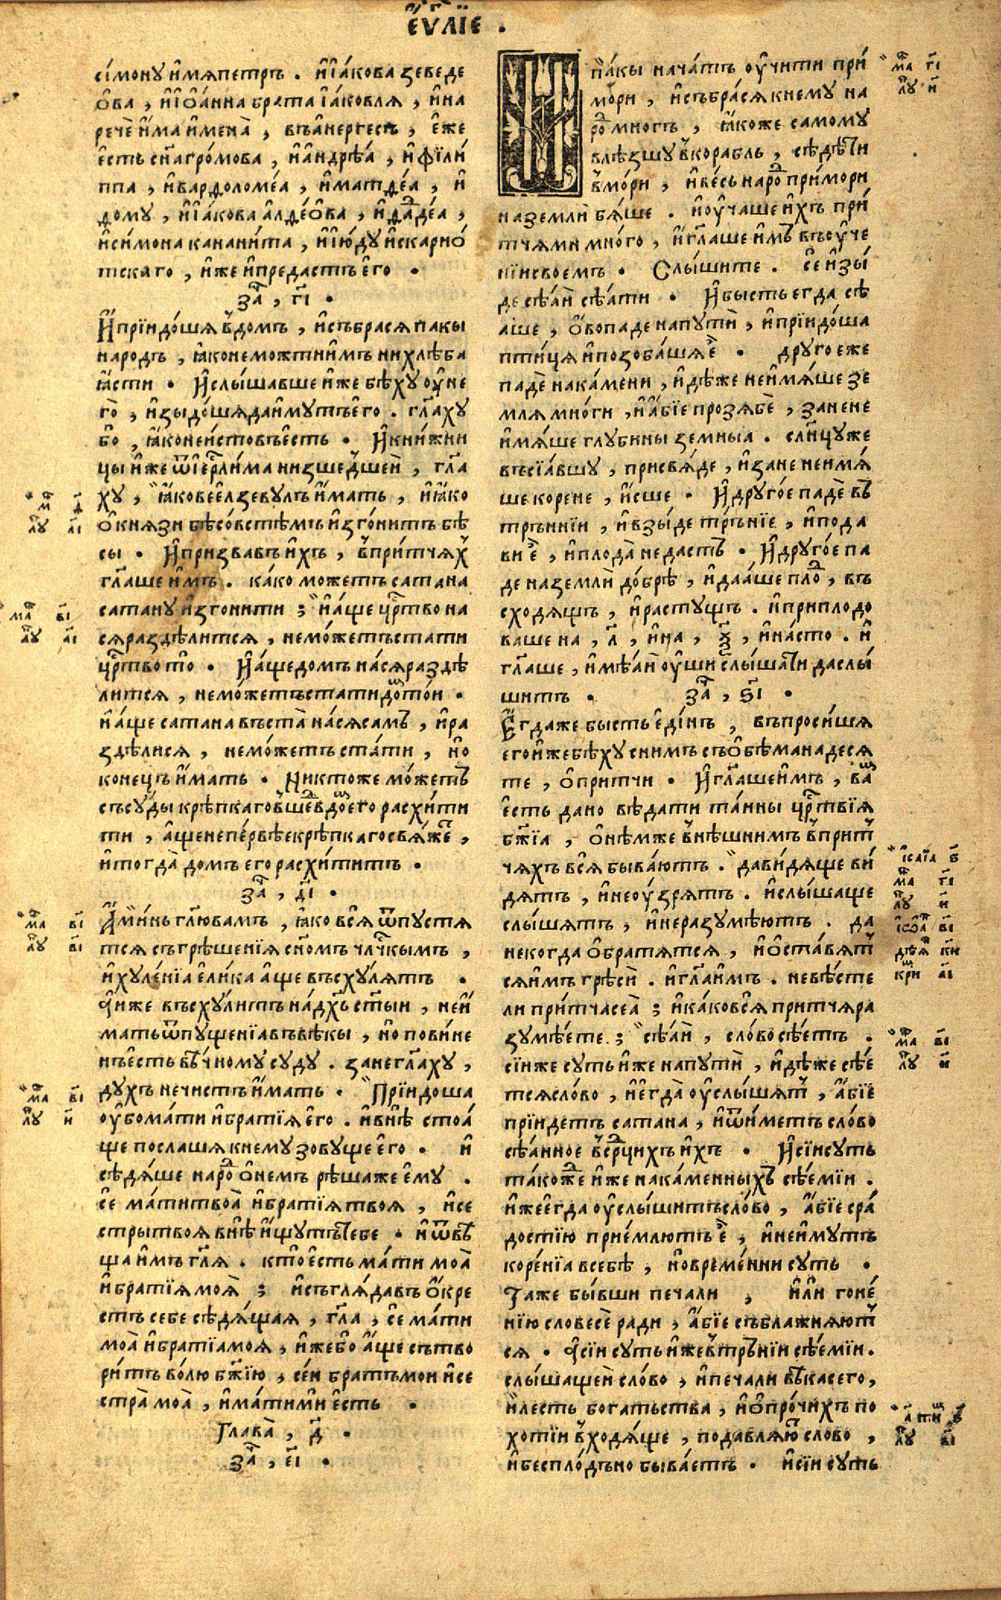 є҆ѵⷢ҇лїе .
сі́мону и҆мя петръ . и҆ і҆а́кова зеведе
ѻ҆ва , и҆ і҆ѡа́нна брата і҆а́ковля , и҆ на
речѐ и҆́ма и҆мена̀ , въанергесъ , є҆́же
є҆́сть сн҃а гро́мова , и҆ а҆ндрѣ́а , и҆ фїли́
ппа , и҆ вардоломе́а , и҆ матѳе́а , и҆
ѳому , и҆ і҆а́кова алѳе́ѻва , и҆ ѳадⷣе́а ,
и҆ си́мона канани́та , и҆ і҆ю́ду и҆скарио́
тскаго , и҆́же и҆ предастъ є҆го .
заⷱ҇ , г҃і .
И҆ прїидо́шя в̾домъ , и҆ събрася пакы
народъ , ꙗ҆ко не можти и҆́мъ ни хлѣ́ба
ꙗ҆́сти . И҆ слы́шавше и҆́же бѣ́ху ѹ҆ не
го̀ , и҆зыдо́шя да и҆мутъ є҆го . гл҃аху
бо , ꙗ҆́ко неи́стовъ є҆сть . И҆ кни́жни
цы и҆́же ѿ і҆ерⷭ҇ли́ма низше́дшеи , гл҃а
ху , ꙗ҆ко веелзеву́лъ и҆́мать , и҆ ꙗ҆ко
ѻ҆ кня́зи бѣсо́вствѣмъ и҆зго́нитъ бѣ
сы . И҆ призва́въ и҆́хъ , в̾при́тчяⷯ
гл҃аше и҆́мъ . ка́ко мо́жетъ сатана
сатану и҆зго́нити ; и҆ а҆́ще црⷭ҇тво на
ся раздѣли́тся , немо́жетъ ста́ти
црⷭ҇тво то̀ . И҆ а҆́ще домъ на́ся раздѣ
ли́тся , немо́жетъ стати до́мⷨ то́и .
и҆ а҆́ще сатана въста̀ на́ся са́мъ , и҆ ра
здѣли́ся , немо́жетъ ста́ти , но
коне́цъ и҆́мать . Никто́же мо́жетъ
съсу́ды крѣ́пкаго в̾ше́дⷣ в̾домⷨ є҆го расхи́ти
ти , а҆́ще не пе́рвѣе крѣ́пкаго свя́жеⷮ ,
и҆ тогда̀ домъ є҆го расхи́титъ .
заⷱ҇ , д҃і .
А҆ми́нь гл҃ю вамъ , ꙗ҆́ко вся̀ ѿпустя
тся съгрѣшенїя сн҃омъ чл҃чкымъ ,
и҆ хуленїа є҆ли́ка а҆́ще въсху́лятъ .
А҆ и҆́же въсху́литъ на дх҃ъ ст҃ыи , неи́
мать ѿпуще́нїа въвѣ́кы , но пови́не
нъ є҆́сть вѣ́чному суду . зане гл҃аху ,
духъ нечи́стъ и҆́мать . Прїидоша
ѹ҆бо ма́ти и҆ братїя є҆го . и҆ внѣ̀ стоа́
ще посла́шя кнему зову́ще є҆го . и҆
сѣдя́ше наро́дⷣ ѻ҆ не́мъ рѣ́ша же є҆му .
се ма́ти твоа̀ и҆ братїя твоя , и҆ се
стры твоя внѣ̀ и҆́щутъ тебе . и҆ ѿвѣ
ща и҆́мъ гл҃я . кто̀ є҆сть ма́ти моа̀
и҆ братїя моя̀ ; и҆ съгляда́въ ѻ҆́кре
стъ себе сѣдя́щая , гл҃а , се ма́ти
моа̀ и҆ братїа моя , и҆́же бо а҆́ще сътво
ри́тъ во́лю бж҃їю , се́и братъ мои и҆ се
стра̀ моа̀ , и҆ ма́ти ми є҆сть .
Глава̀ , д҃ .
заⷱ҇ , є҃і .
И҆ па́кы нача́тъ ѹ҆чи́ти при́
мори , и҆ събра́ся кнему на
роⷣ многъ , ꙗ҆́коже самому
влѣ́зшу в̾кора́бль , сѣдѣ́ти
в̾мо́ри , и҆ ве́сь нароⷣ при мори
на землѝ бя́ше . и҆ ѹ҆ча́ше и҆́хъ при́
тчями мно́го , и҆ гл҃аше и҆́мъ въ ѹ҆че
нїи своемъ . Слы́шите . се и҆зы́
де сѣ́аи сѣ́ати . И҆ бысть егда сѣ
аше , ѻ҆́во паде напутѝ , и҆ прїидо́ша
пти́ця и҆ позоба́шя є҆̀ . друго еже
падѐ на ка́мени , и҆дѣ́же неи́мяше зе
мля мно́ги , и҆ а҆́бїе прозябѐ , зане не
и҆мяше глубины земныа . сл҃нцу же
въсїа́вшу , присвя́де , и҆ зане неимя́
ше корене , и҆́сше . И҆ друго́е падѐ въ
трънїи , и҆ взы́де тръ́нїе , и҆ пода
ви є҆̀ , и҆ плода̀ недастъ . И҆ друго́е па
де на землѝ до́брѣ , и҆ даа́ше плоⷣ , въ
сходя́щъ , и҆ расту́щъ . и҆ приплодо
ваше на , л҃ , и҆ на , ѯ҃ , и҆ на́ сто . и҆
гл҃аше , и҆мѣ́аи ѹ҆́ши слы́шати да слы́
шитъ .
заⷱ҇ , ѕ҃і .
Е҆гда же бысть є҆ди́нъ , въпроси́шя
его и҆́же бѣ́ху сни́мъ съ ѻ҆бѣ́ма на деся
те , ѻ҆ при́тчи . И҆ гл҃аше и҆мъ , ваⷨ
є҆сть дано вѣ́дати та́ины црⷭ҇твїя
бж҃їа , ѻ҆нѣ́мже в̾нѣ́шнимъ в̾при́тⷱ
чяхъ вся быва́ютъ . да ви́дяще ви́
дятъ , и҆ не ѹ҆́зрятъ . и҆ слы́шаще
слы́шятъ , и҆ неразумѣ́ютъ . да
некогда ѻ҆братя́тся , и҆ ѻ҆ста́вятⷮ
ся и҆́мъ грѣ́си . и҆ гл҃а и҆́мъ . невѣ́сте
ли при́тча сеа̀ ; и҆ ка́ко вся притчя ра
зумѣ́ете ; сѣ́аи , сло́во сѣ́етъ .
сїи же суть и҆́же напутѝ , и҆дѣ́же сѣе́
тся сло́во , и҆ є҆гда̀ ѹ҆слы́шятⷮ , а҆́бїе
прїидетъ сатана , и҆ ѿи́метъ сло́во
сѣ́анное в̾срⷣцихъ и҆хъ . И҆ сїи суть
та́коже и҆́же на ка́менныхъ сѣ́емїи .
и҆́же є҆гда ѹ҆слы́шитъ сло́во , а҆́бїе с ра́
достїю прїе́млютъ є҆̀ , и҆ неи́мутъ
коре́нїа всебѣ̀ , но вре́менни суть .
Таже бы́вши печали , и҆́ли гоне́
нїю словесѐ ради , а҆́бїе съблажня́ютⷮ
ся . А҆ сїи суть и҆́же в̾трънїи сѣ́емїи .
слы́шащеи сло́во , и҆ печали вѣ́ка сего ,
и҆ ле́сть бога́тьства , и҆ ѻ҆ про́чихъ по
хотїи в̾ходя́ще , подавля́юⷮ слово ,
и҆ беспло́дъно быва́етъ . и҆ сїи суть